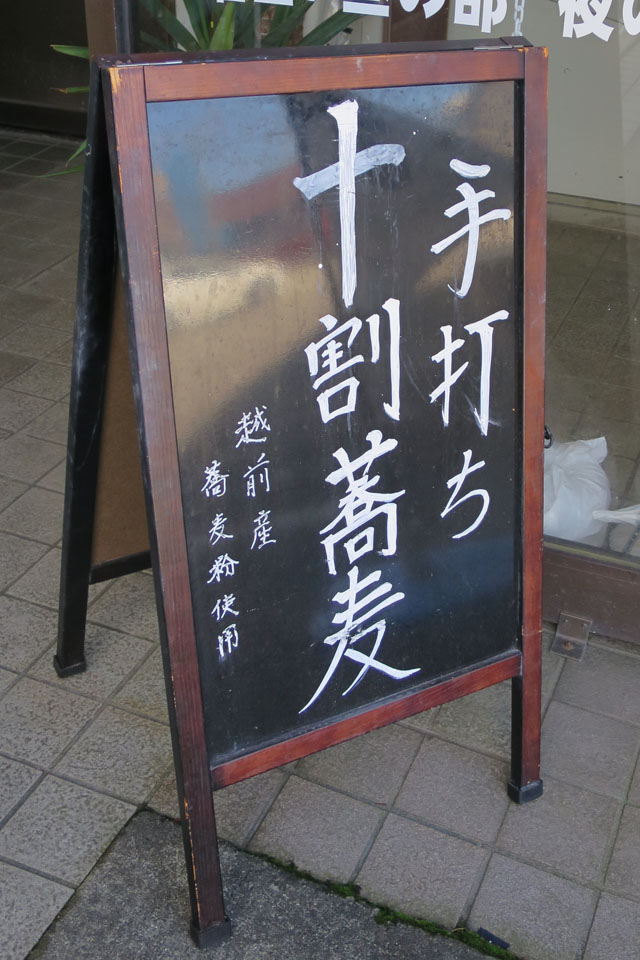 手打ち
十割蕎麦
越前産
蕎麦粉使用
の部
夜